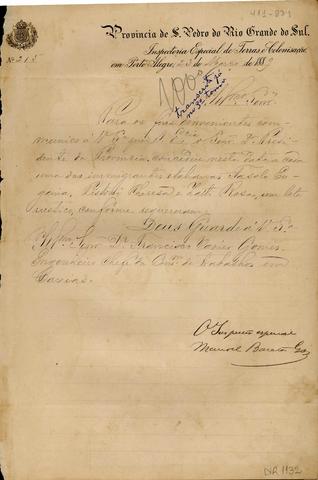 411-871
Provincia de S. Pedro do Rio Grande do Sul.
Inspectoria Especial de Terras e Colonisação
em Porto Alegre, 23 de Março de 1889
Nº 213
1900
transcripto já
no 3º tomo
Illmo. Senr.
Para os fins convenientes com-
munico a V. Sª que S. Exª o Senr. Dr. Presi-
dente da Provincia, concedeu nesta data a cada
uma das immigrantes italianas Fasolo Eu-
genia, Theresa e Rosa, um lote
rustico, conforme requereram.
Deus Guarde a V. Sª
Illmo. Senr. Dr. Francisco Xavier Gomes
Engenheiro Chefe da de Trabalhos em
Caxias.
O Inspector especial
Manoel Barata Góes
NR 1132